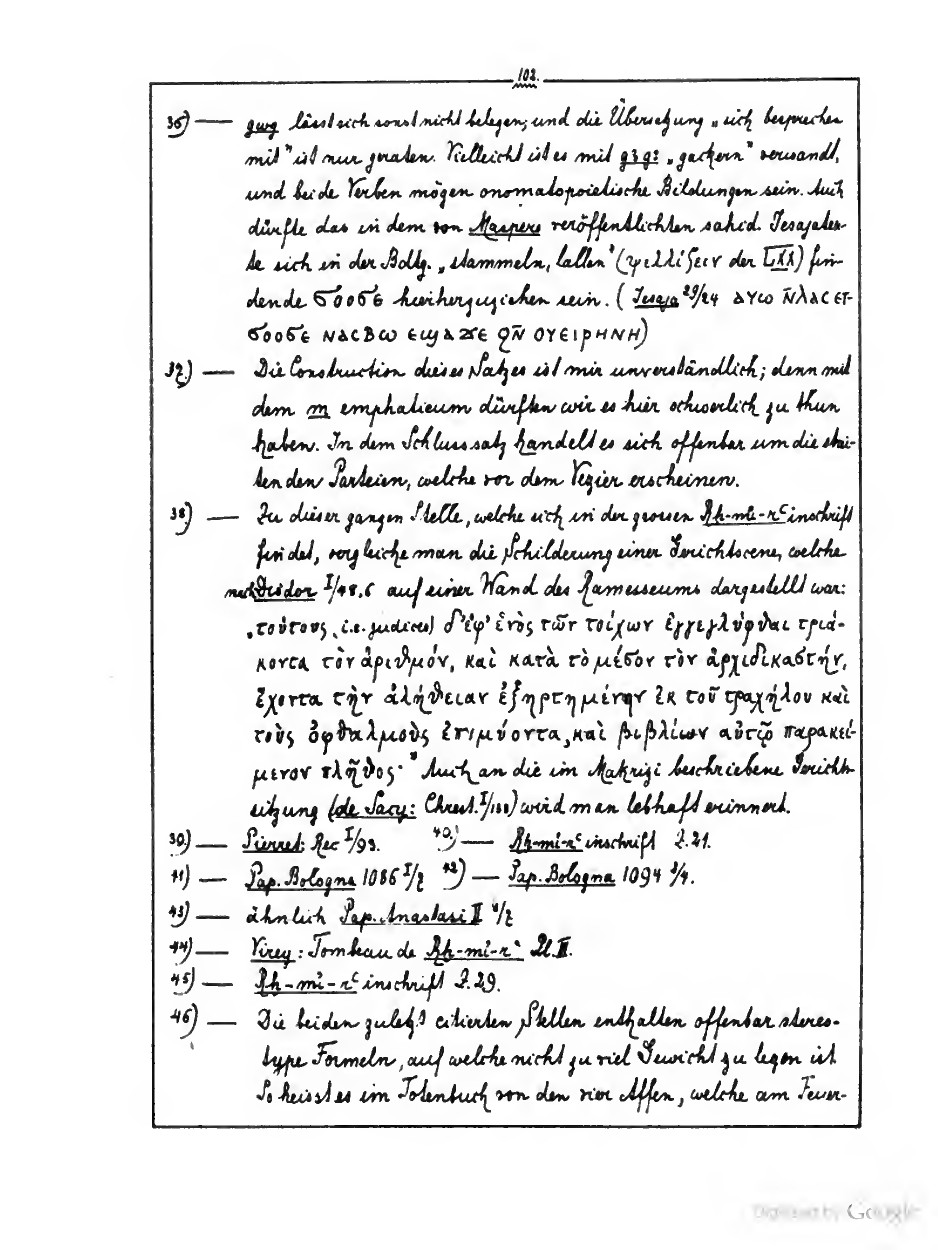 102.
36) — gwg lässt sich sonst nicht belegen; und die Übersetzung „sich besprechen
mit" ist nur geraten. Vielleicht ist es mit g3g3 „gackern" verwandt,
und beide Verben mögen onomatopoietische Bildungen sein. Auch
dürfte das in dem von Maspero veröffentlichten sahid. Jesajatex-
te sich in der Bdtg. „stammeln, lallen" (ψελλίζειν der LXX) fin-
dende ϭⲟⲟϭⲉ hierherzuziehen sein. (Jesaja 29/24 ⲁⲩⲱ ⲛ̄ⲗⲁⲥ ⲉⲧ-
ϭⲟⲟϭⲉ ⲛⲁⲥⲃⲱ ⲉϣⲁϫⲉ ϩⲛ̄ ⲟⲩⲉⲓⲣⲏⲛⲏ)
37.) — Die Construction dieses Satzes ist mir unverständlich; denn mit
dem m emphaticum dürften wir es hier schwerlich zu thun
haben. In dem Schlusssatz handelt es sich offenbar um die strei-
tenden Parteien, welche vor dem Vezier erscheinen.
38) — Zu dieser ganzen Stelle, welche sich in der grossen Rh-mi-rꜥ inschrift
findet, vergleiche man die Schilderung einer Gerichtscene, welche
nach Diodor I/48.6 auf einer Wand des Ramesseums dargestellt war:
„τούτους (i.e. judices) δ'ἐφ' ἑνὸς τῶν τοίχων ἐγγεγλύφθαι τριά-
κοντα τὸν ἀριθμόν, καὶ κατὰ τὸ μέσον τὸν ἀρχιδικαστήν,
ἔχοντα τὴν ἀλήθειαν ἐξηρτημένην ἐκ τοῦ τραχήλου καὶ
τοὺς ὀφθαλμοὺς ἐπιμύοντα, καὶ βιβλίων αὐτῷ παρακεί-
μενον πλῆθος·" Auch an die im Makrizi beschriebene Gerichts-
sitzung (de Sacy: Chrest. I/) wird man lebhaft erinnert.
39.) — Pierret: Rec I/93. 40.) — Rh-mi-rꜥ inschrift Z. 21.
41) — Pap. Bologna 1086 I/7 42) — Pap. Bologna 1094 3/4.
43) — ähnlich Pap. Anastasi II /7
44) — Virey: Tombeau de Rh-mi-rꜥ Pl. II.
45) — Rh-mi-rꜥ inschrift Z. 29.
46) — Die beiden zuletzt citierten Stellen enthalten offenbar stereo-
type Formeln, auf welche nicht zu viel Gewicht zu legen ist
So heisst es im Totenbuch von den vier Affen, welche am Feuer-
Digitized by Google